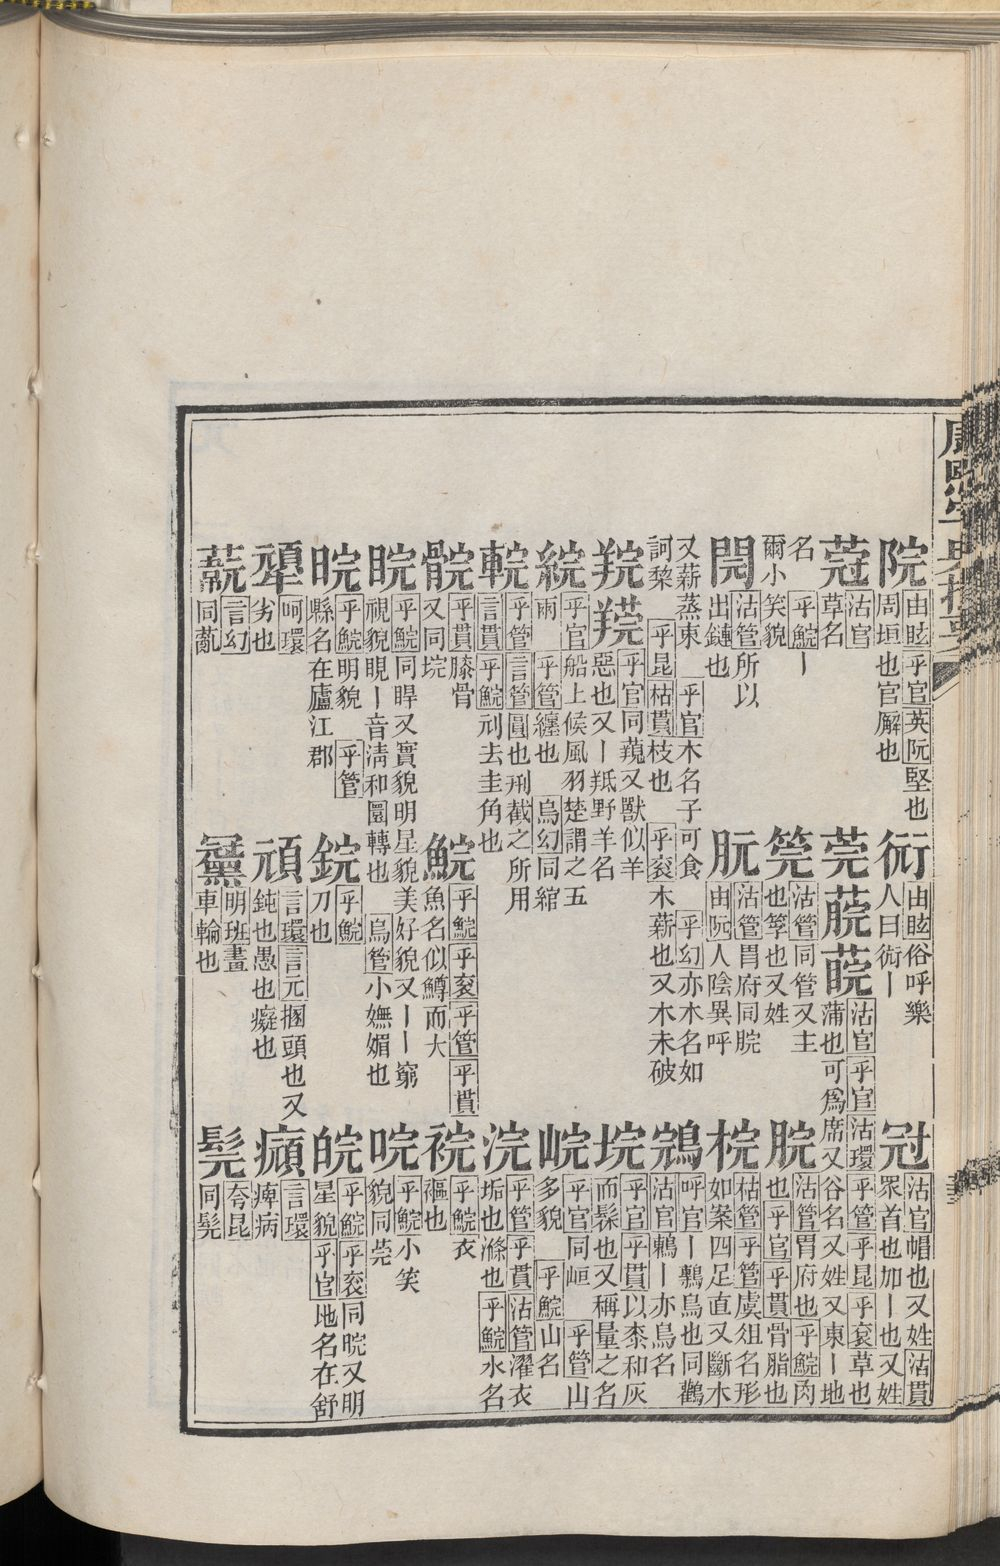 康熙字典撮要
院 由眩 乎官 英阮 堅也周垣也官廨也
衏 由眩 俗呼樂人曰衏丨
冠 沽官 帽也又姓 沽貫 眾首也加丨也又姓
蒄 沽官 草名
莞 䓴 沽官 乎官 沽環 乎管 乎昆 乎袞 草也蒲也可爲席又谷名又姓又東丨地名 乎鯇 丨爾小笑貌
筦 沽管 同管又主也筟也又姓
脘 沽管 胃府也 乎鯇 肉也 乎官 乎貫 骨脂也
閞 沽管 所以出鏈也
朊 沽管 胃府同脘 由阮 人陰異呼
梡 枯管 乎管 虞俎名形如案四足直又斷木又薪蒸束 乎官 木名子可食 乎幻 亦木名如訶棃 乎昆 枯貫 枝也 乎袞 木薪也又木未破
鵍 呼官 丨鷒鳥也同鸛 沽官 鶾丨亦鳥名
羦 羱 乎官 同䕪又獸似羊惡也又丨羝野羊名
垸 乎官 乎貫 以桼和灰而髹也又稱量之名
綄 乎官 船上候風羽楚謂之五兩 乎管 纏也 烏幻 同綰
峘 乎官 同峘 乎管 山多貌 乎鯇 山名
輐 乎管 言管 圓也刑截之所用 言貫 乎鯇 刓去圭角也
浣 乎管 乎貫 沽管 濯衣垢也滌也 乎鯇 水名
髖 乎貫 膝骨又同垸
鯇 乎鯇 乎袞 乎管 乎貫 魚名似鱒而大
裗 乎鯇 衣褔也
睆 乎鯇 同睅又實貌明星貌美好貌又丨丨窮視貌睍丨音淸和圜轉也 烏管 小嫵媚也
唍 乎鯇 小笑貌同莞
晥 乎鯇 明貌 乎管 縣名在廬江郡
鋎 乎鯇 刀也
皖 乎鯇 乎袞 同晥又明星貌 乎官 地名在舒
呵環 劣也
頑 言環 言元 㮯頭也又鈍也愚也癡也
癏 言環 痺病
言幻 同薍
明班 畫車輪也
髡 夸昆 同髠